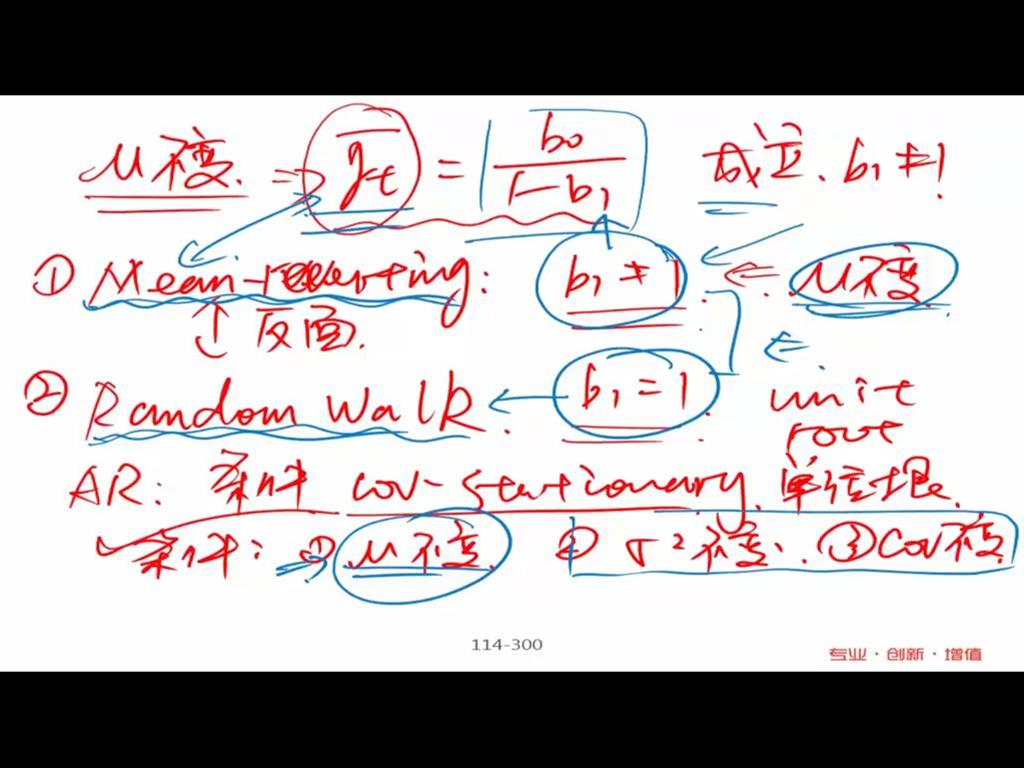 μ不变 ⇒ ȳt = b0/(1-b1) 成立. b1≠1
① Mean-reverting: b1≠1. ⇐ μ不变
↕ 反面.
② Random Walk. ← b1=1. unit root
AR: 条件 cov-stationary. 单位根.
条件: ① μ不变. ② σ²不变. ③ cov不变
114-300
专业·创新·增值